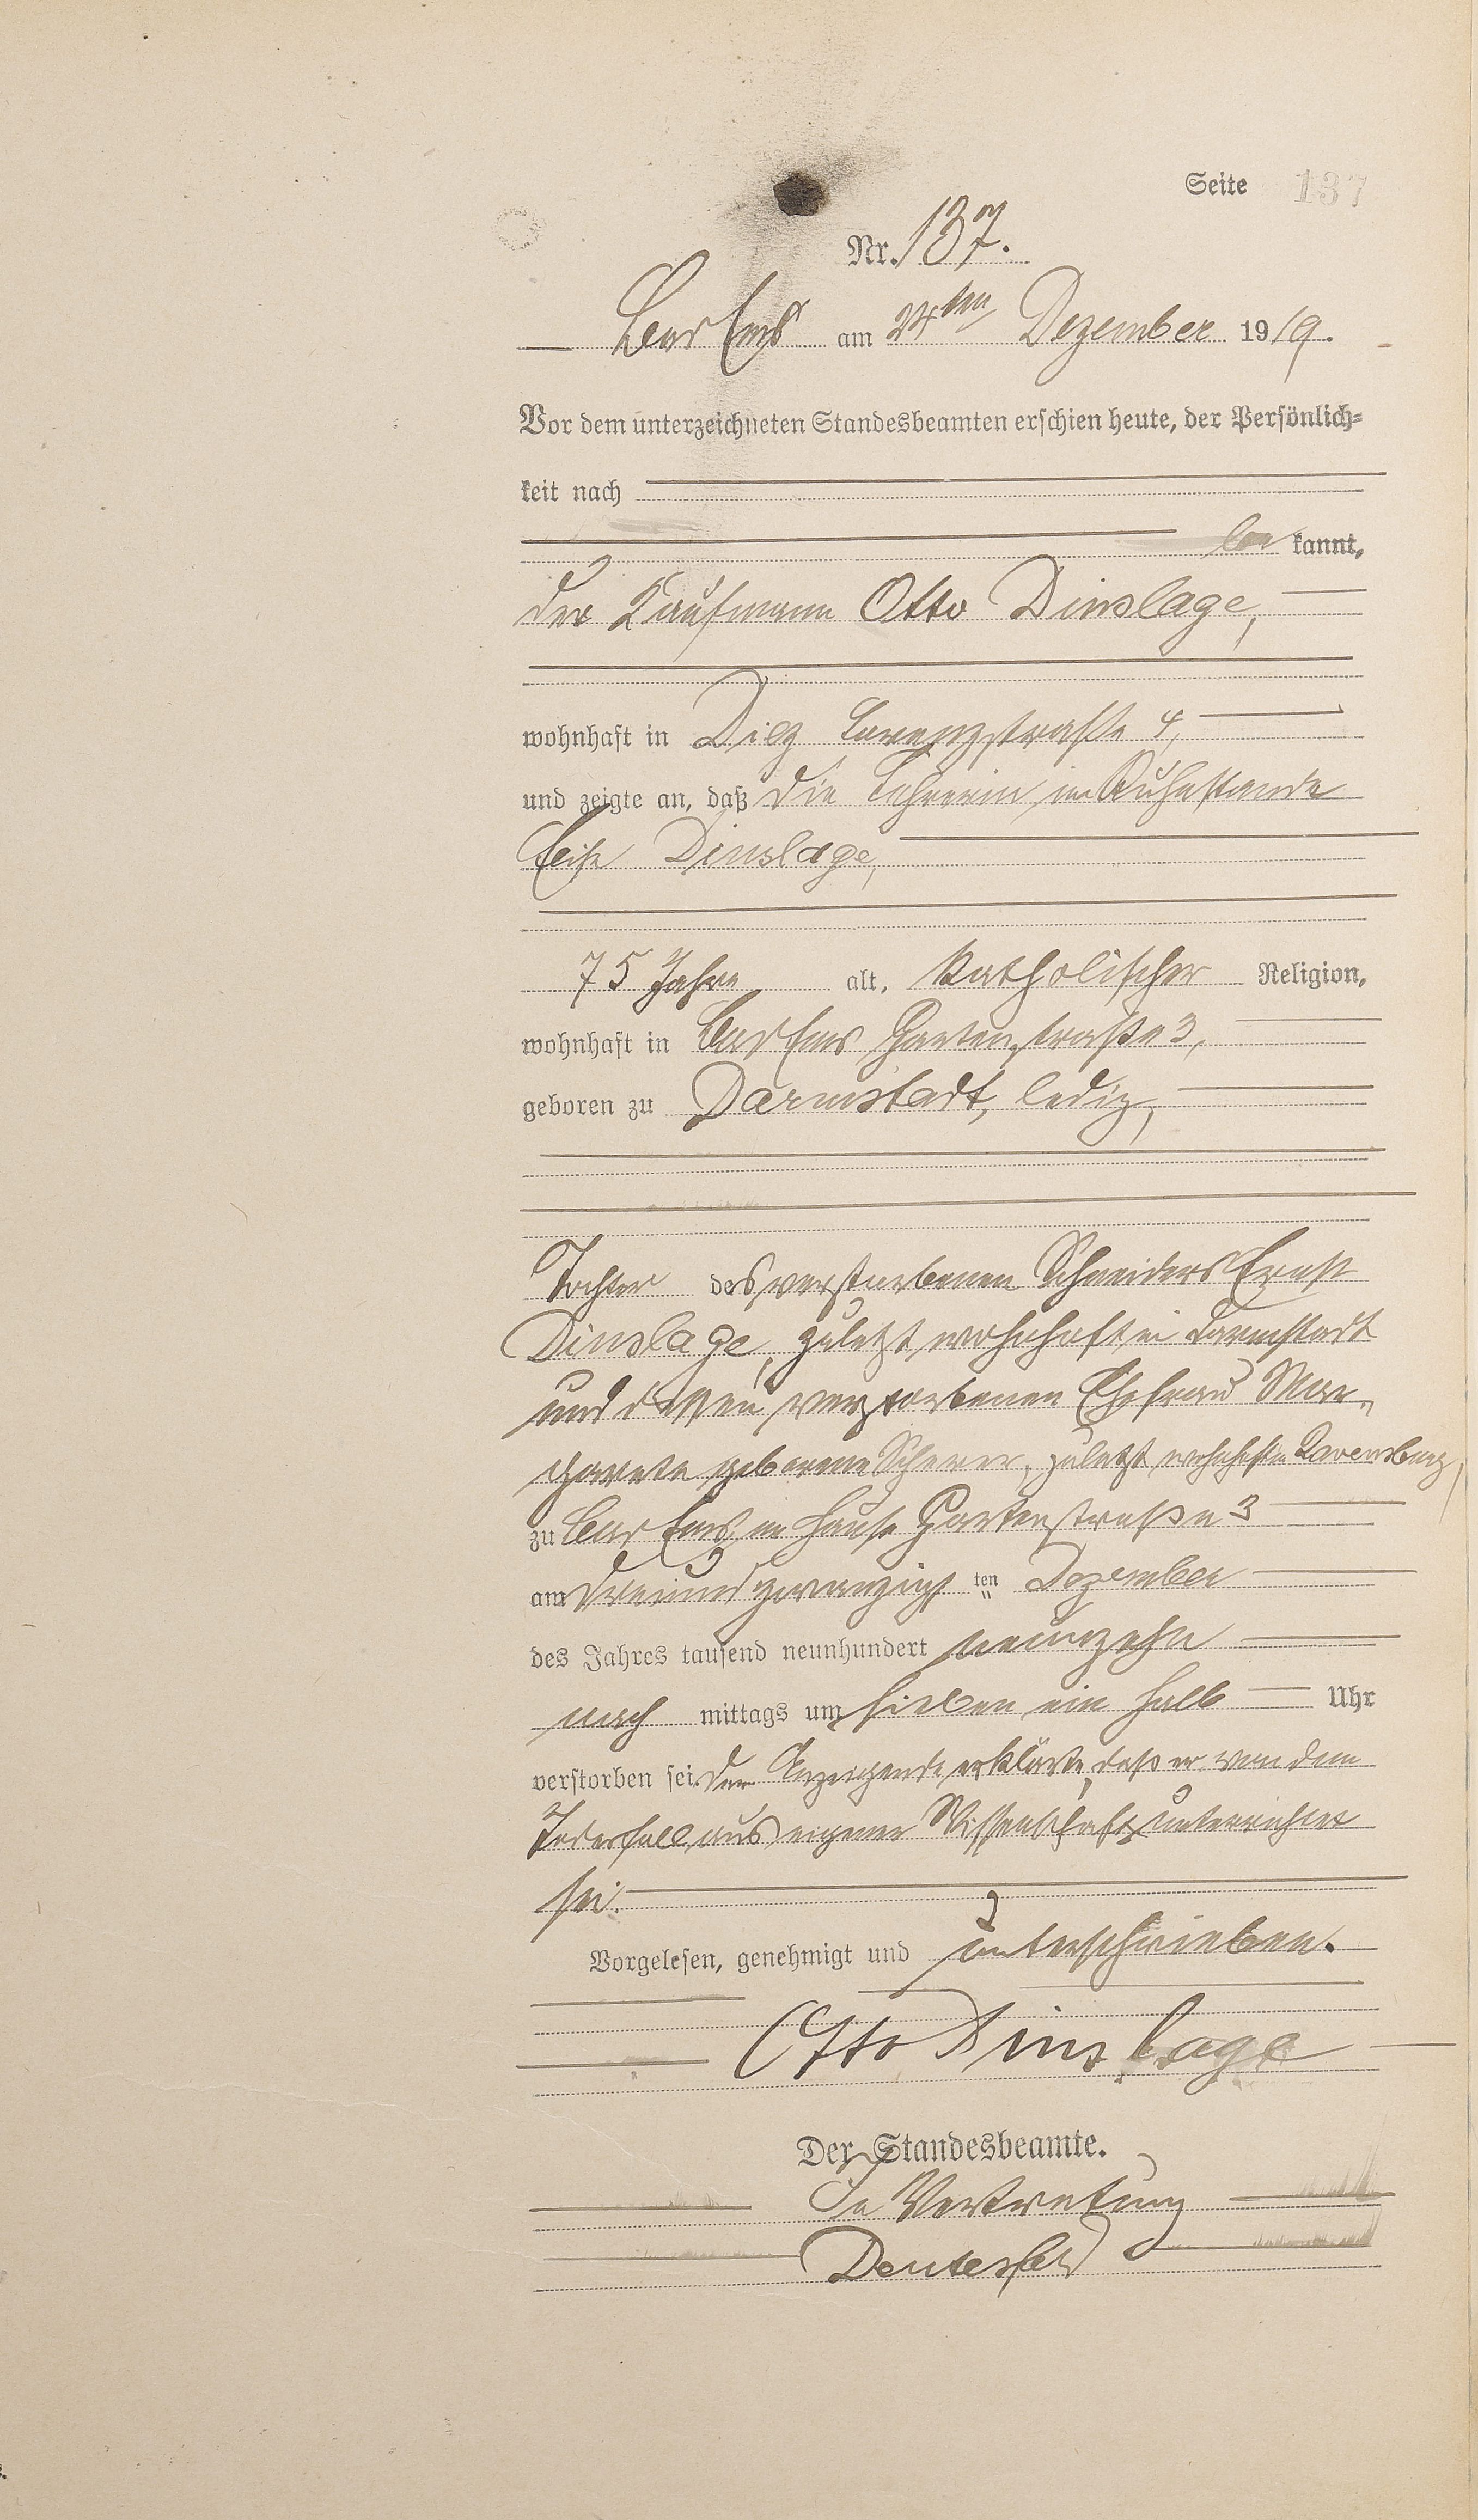 Seite 137
Nr. 137.
Bad Ems am 24ten Dezember 1919.
Vor dem unterzeichneten Standesbeamten erschien heute, der Persönlich-
keit nach
be kannt,
der Kaufmann Otto Dinslage,
wohnhaft in Diez Lorenzstraße 4,
und zeigte an, daß die Lehrerin im Ruhestande
Dinslage,
75 Jahre alt, katholischer Religion,
wohnhaft in Bad Ems Gartenstraße 3,
geboren zu Darmstadt, ledig,
Tochter des verstorbenen Schneiders Ernst
Dinslage, zuletzt wohnhaft in Darmstadt
und dessen verstorbenen Ehefrau Mar-
garete geborene Scherer, zuletzt wohnhaft in Ravensburg,
zu Bad Ems, im Hause Gartenstraße 3
am dreiundzwanzigsten ten Dezember
des Jahres tausend neunhundert neunzehn
nach mittags um sieben ein halb Uhr
verstorben sei. Der Anzeigende erklärte, daß er von dem
Todesfall aus eigener Wissenschaft unterrichtet
sei.
Vorgelesen, genehmigt und unterschrieben.
Otto Dinslage
Der Standesbeamte.
In Vertretung